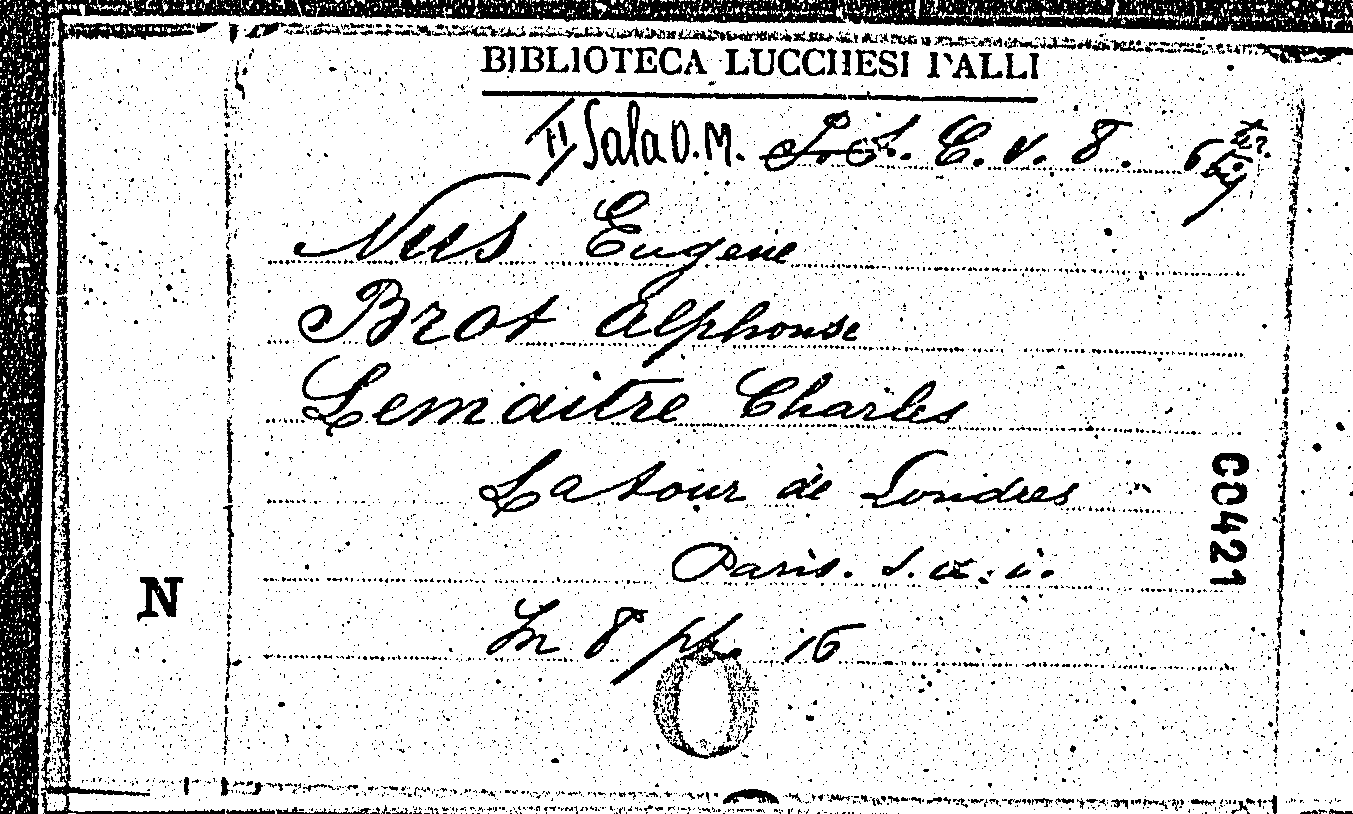 BIBLIOTECA LUCCHESI PALLI
II Sala O.M. C. v. 8. 6
Nus Eugene
Brot Alphonse
Lemaitre Charles
La tour de Londres
Paris. s. a. i.
N
In 8 pp. 16
00421